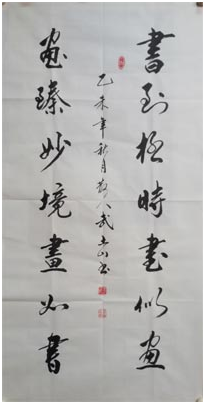 書到極時書似畫
畫臻妙境畫如書
乙未年秋月 八武 山书